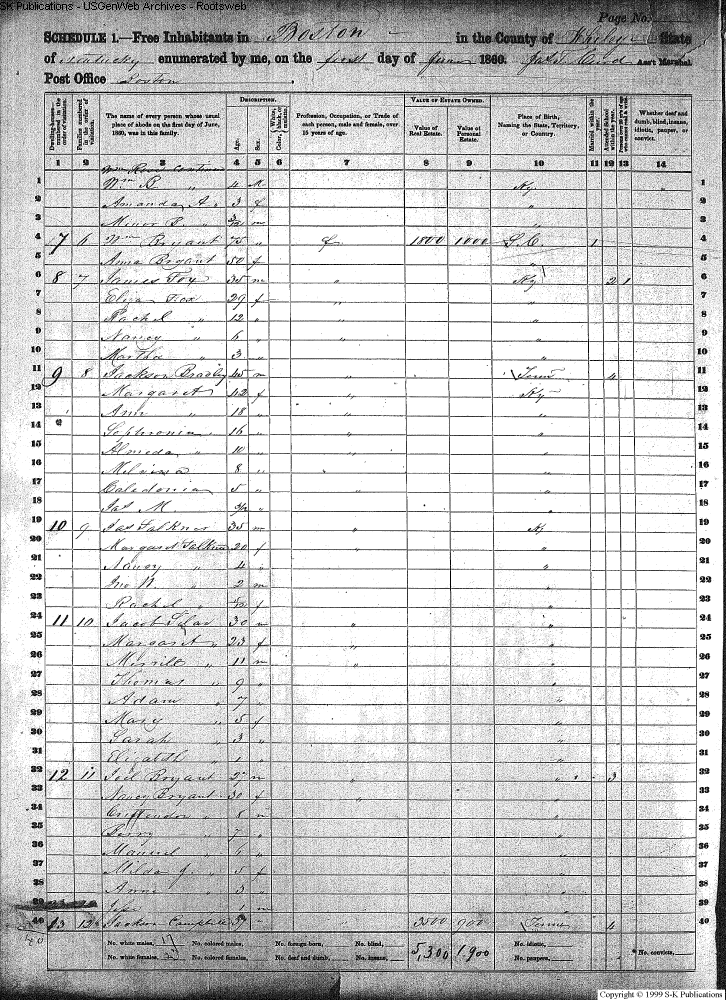 S-K Publications - USGenWeb Archives - Rootsweb
Page No.
SCHEDULE 1.—Free Inhabitants in Boston in the County of Whitley State
of Kentucky enumerated by me, on the first day of June 1860. Ass't Marshal.
Post Office Boston
Dwelling-houses— numbered in the order of visitation.
Families numbered in the order of visitation.
The name of every person whose usual place of abode on the first day of June, 1860, was in this family.
DESCRIPTION.
Age.
Sex.
Color, White, black, or mulatto.
Profession, Occupation, or Trade of each person, male and female, over 15 years of age.
VALUE OF ESTATE OWNED.
Value of Real Estate.
Value of Personal Estate.
Place of Birth, Naming the State, Territory, or Country.
Married within the year.
Attended School within the year.
Whether deaf and dumb, blind, insane, idiotic, pauper, or convict.
1 2 3 4 5 6 7 8 9 10 11 12 13 14
1 Wm R 4 M Ky 1
2 Amanda A 3 f 2
3 m 3
4 7 6 Wm Bryant 75 " f 1800 1000 S.C. 1 4
5 Anna Bryant 50 f " 5
6 8 7 James Fox 35 m " Ky 2 1 6
7 Eliza Fox 29 f " " 7
8 Rachel " 12 " " " 8
9 Nancy " 6 " " " 9
10 Martha " 3 " " 10
11 9 8 Jackson Bradley 45 m " Tenn 4 11
12 Margaret 42 f " Ky 12
13 Ann " 18 " " " 13
14 Sophronia " 16 " " " 14
15 Almeda " 10 " " " 15
16 Melvina 8 " " 16
17 Caledonia 5 " " 17
18 Jas M. " 18
19 10 9 Jas Falkner 35 m " Ky 19
20 Margaret Falkner 20 f " 20
21 Nancy " 4 " " 21
22 Jno " 2 m 22
23 Rachel " f 23
24 11 10 Jacob 30 m " " 24
25 Margaret " 23 f " " 25
26 Merrill " 11 m " " 26
27 Thomas " 9 " 27
28 Adam " 7 " " 28
29 Mary 5 f " 29
30 Sarah " 3 " " 30
31 Elizabeth " 1 " " 31
32 12 11 Joel Bryant 27 m " " 3 32
33 Nancy Bryant 30 f " " 33
34 Crittendon " 8 m " 34
35 Perry " 7 " " 35
36 Manuel " 6 " " 36
37 Milda J. " 5 f " 37
38 Anna " 3 " " 38
39 1 m 39
40 13 12 Jackson Campbell 39 " " 3500 900 Tenn 4 40
No. white males, 17 No. colored males, No. foreign born, No. blind, No. idiotic,
No. white females, No. colored females, No. deaf and dumb, No. insane, 5,300 1.900 No. paupers, No. convicts,
Copyright © 1999 S-K Publications